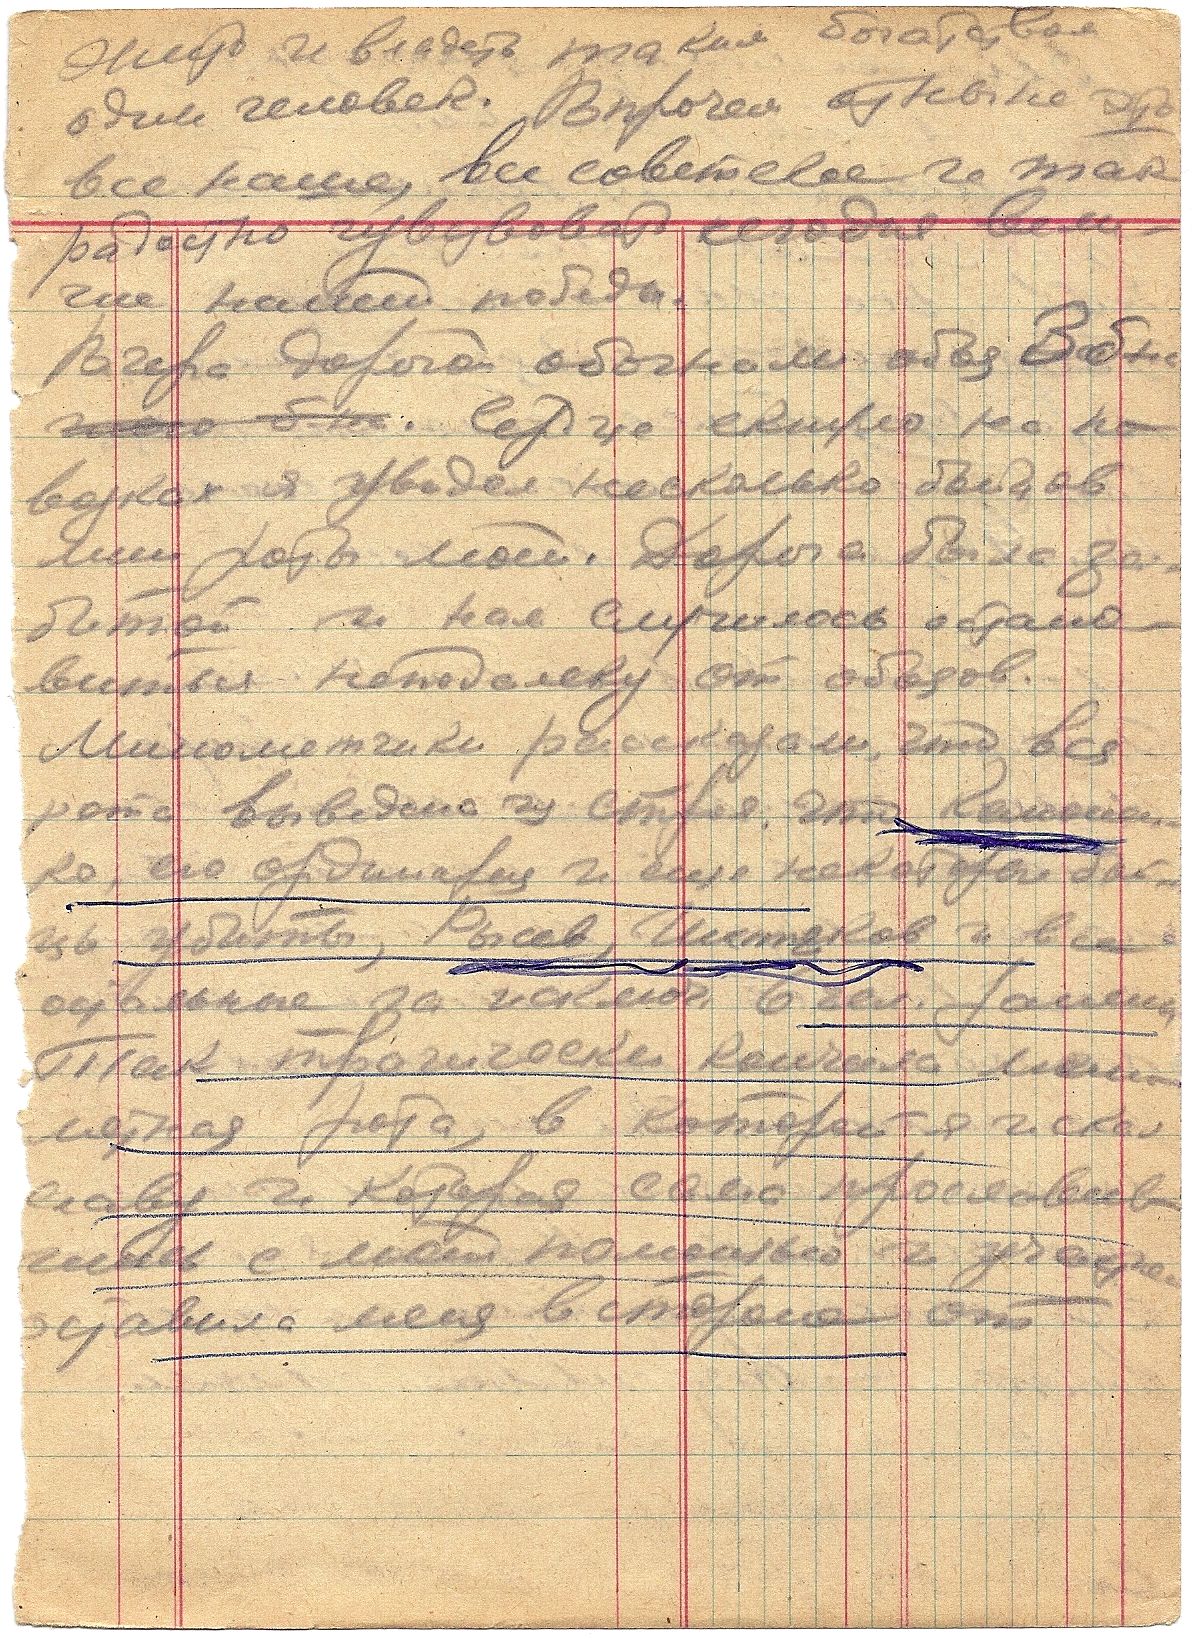 жить и владеть таким богатством
один человек. Впрочем отныне это
все наше, все советское и так
радостно чувствовать сегодня вели-
чие нашей победы.
Вчера дорогой обогнали обоз 3 бна
Сердце екнуло на по-
возках я увидел несколько бойцов
мин роты моей. Дорога была за-
битой и нам случилось остано-
виться неподалеку от обозов.
Минометчики рассказали, что вся
рота выведена из строя, что
ко, его ординарец и еще некоторые бой-
цы убиты, Рысев, и все
остальные за исключ 6 чел. ранены
Так трагически кончила мино-
метная рота, в которой я искал
славу и которая сама прославив-
шись с моей помощью и участием
оставила меня в стороне от